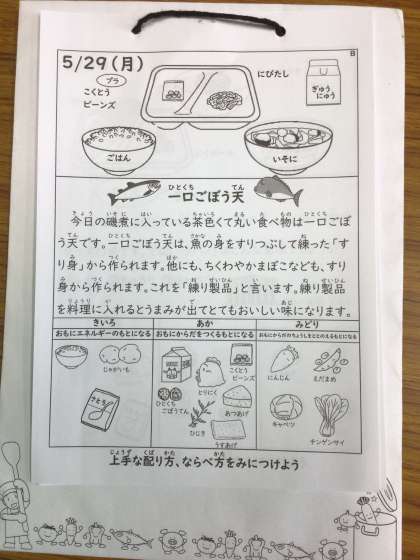 5/29(月)
B
プラ
こくとう
ビーンズ
にびたし
ぎゅう
にゅう
ごはん
いそに
一口ごぼう天
今日の磯煮に入っている茶色くて丸い食べ物は一口ごぼ
う天です。一口ごぼう天は、魚の身をすりつぶして練った「す
り身」から作られます。他にも、ちくわやかまぼこなども、すり
身から作られます。これを「練り製品」と言います。練り製品
を料理に入れるとうまみが出てとてもおいしい味になります。
きいろ
あか
みどり
おもにエネルギーのもとになる
おもにからだをつくるもとになる
おもにからだのちょうしをととのえるもとになる
じゃがいも
さとう
ひとくち
ごぼうてん
とりにく
こくとう
ビーンズ
ひじき
あつあげ
うすあげ
にんじん
えだまめ
キャベツ
チンゲンサイ
上手な配り方、ならべ方をみにつけよう